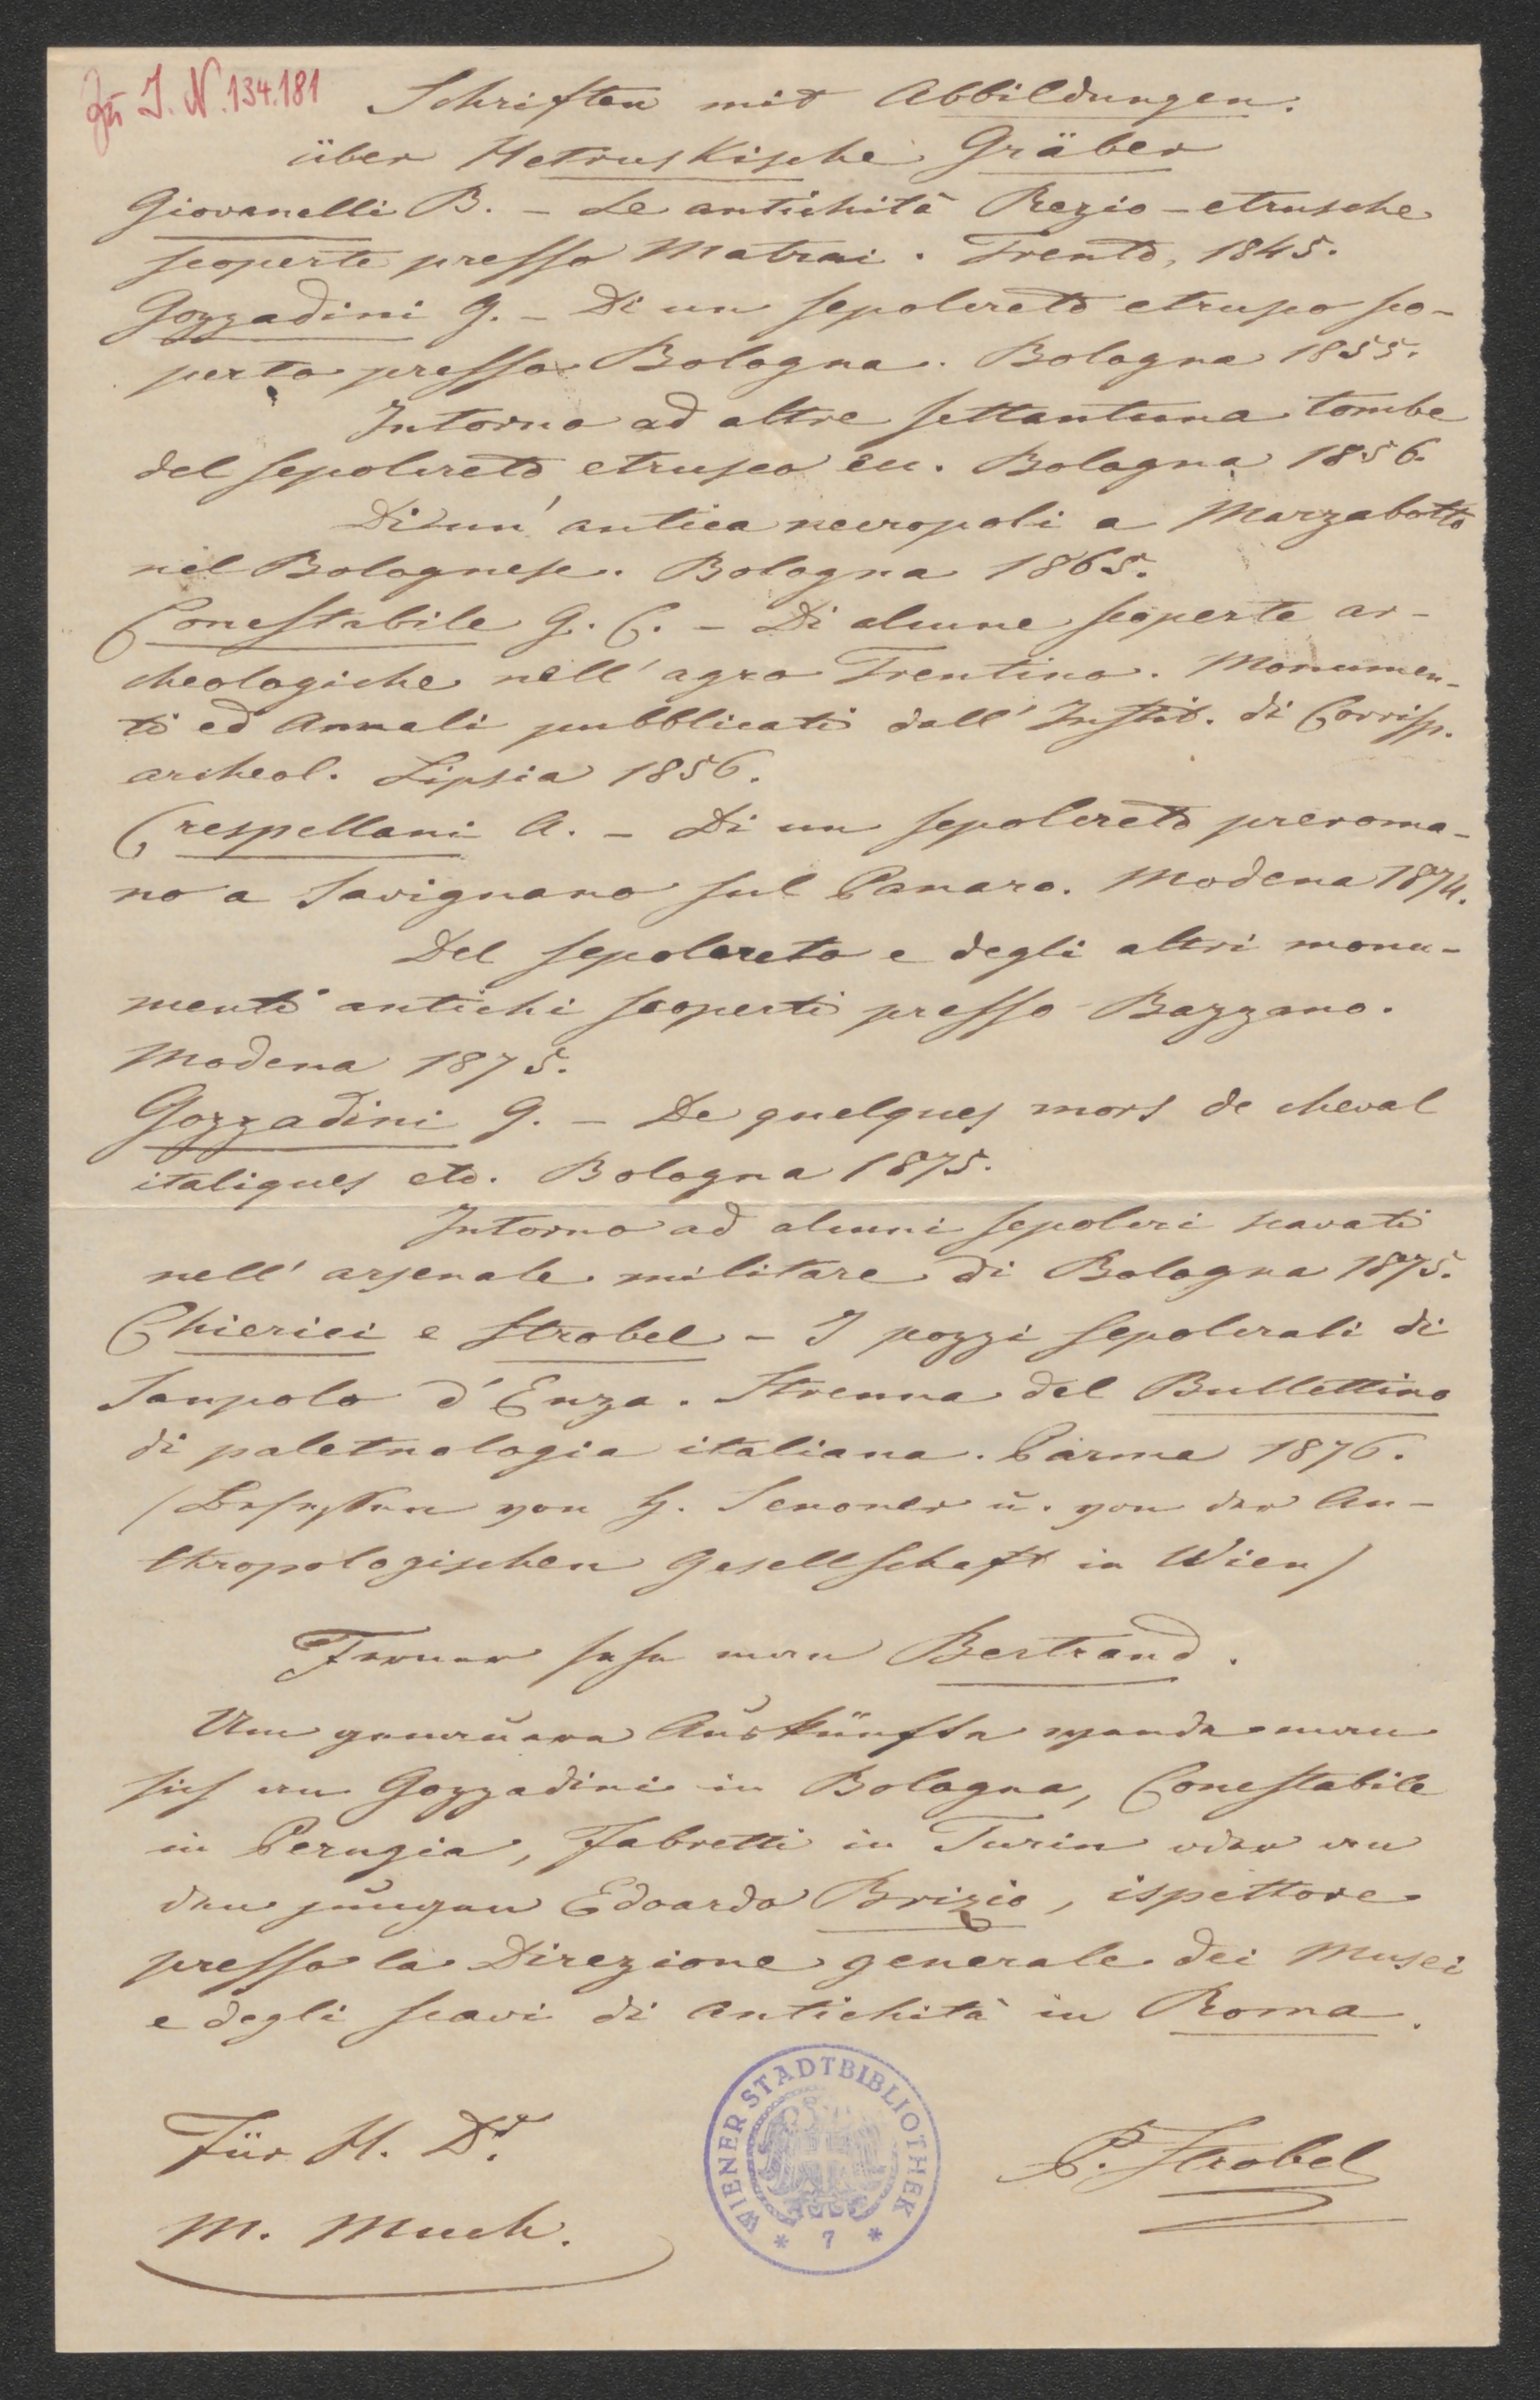 Zu I. N. 134.181
Schriften mit Abbildungen.
über Hetruskische Gräber
Giovanelli B. – Le antichità Rezio-etrusche
scoperte presso Matrai. Trento, 1845.
Gozzadini G. – Di un sepolcreto etrusco sco-
perto presso Bologna. Bologna 1855.
Intorno ad altre settantuna tombe
del sepolcreto etrusco ecc. Bologna 1856.
Di un' antica necropoli a Marzabotto
nel Bolognese. Bologna 1865.
Conestabile G. C. – Di alcune scoperte ar-
cheologiche nell' agro Trentino. Monumen-
ti ed Annali pubblicati dall' Instit. di Corrisp.
archeol. Lipsia 1856.
Crespellani A. – Di un sepolcreto preroma-
no a Savignano sul Panaro. Modena 1874.
Del sepolcreto e degli altri monu-
menti antichi scoperti presso Bazzano.
Modena 1875.
Gozzadini G. – De quelques mors de cheval
italiques etc. Bologna 1875.
Intorno ad alcuni sepolcri scavati
nell' arsenale militare di Bologna 1875.
Chierici e Strobel – I pozzi sepolcrali di
Sanpolo d'Enza. Strenna del Bullettino
di paletnologia italiana. Parma 1876.
(Besessen von H. Senoner u. von der An-
thropologischen Gesellschaft in Wien)
Ferner sehe man Bertrand.
Um genauere Auskünfte wende man
sich an Gozzadini in Bologna, Conestabile
in Perugia, Fabretti in Turin oder an
den jungen Edoardo Brizio, ispettore
presso la Direzione generale dei Musei
e degli scavi di Antichità in Roma.
Für H. Dr.
M. Much.
P. Strobel
WIENER STADTBIBLIOTHEK
* 7 *